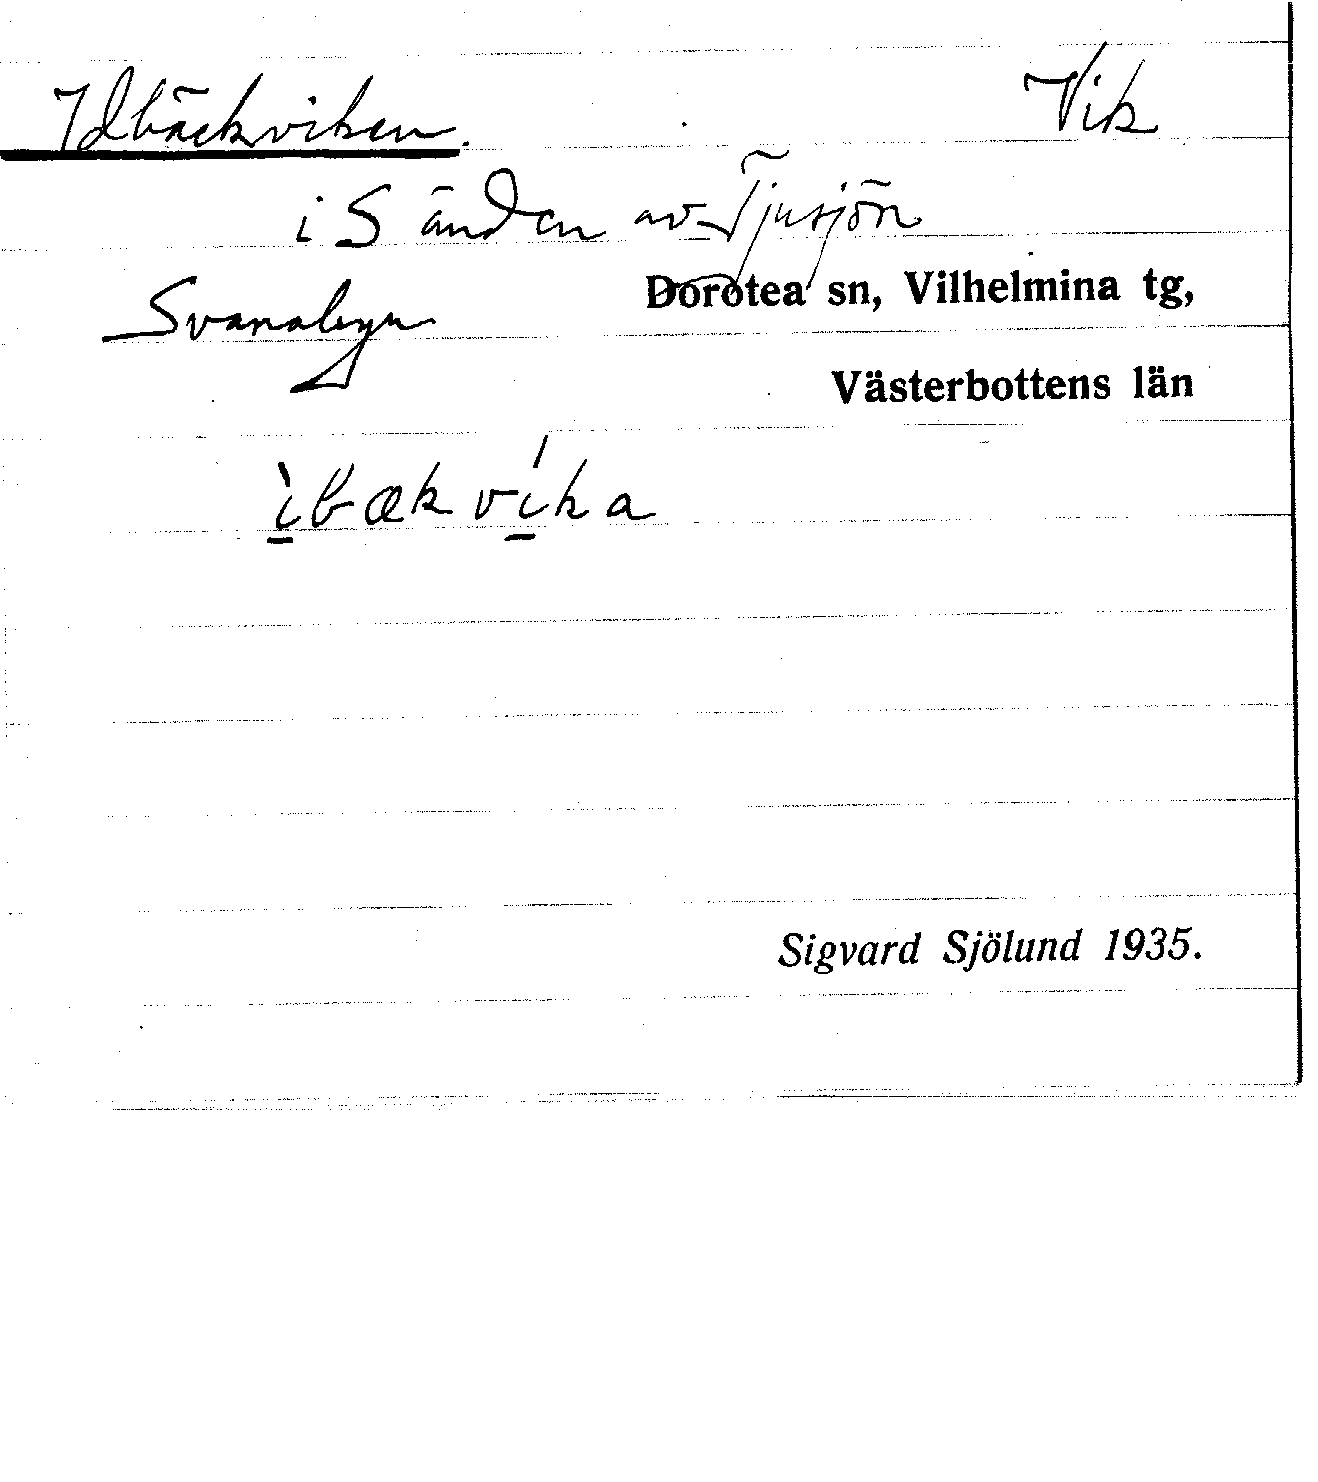 Idbäckviken. Vik
i S änden av Tjusjön
Svanabyn Dorotea sn, Vilhelmina tg,
Västerbottens län
ìbækvíka
Sigvard Sjölund 1935.